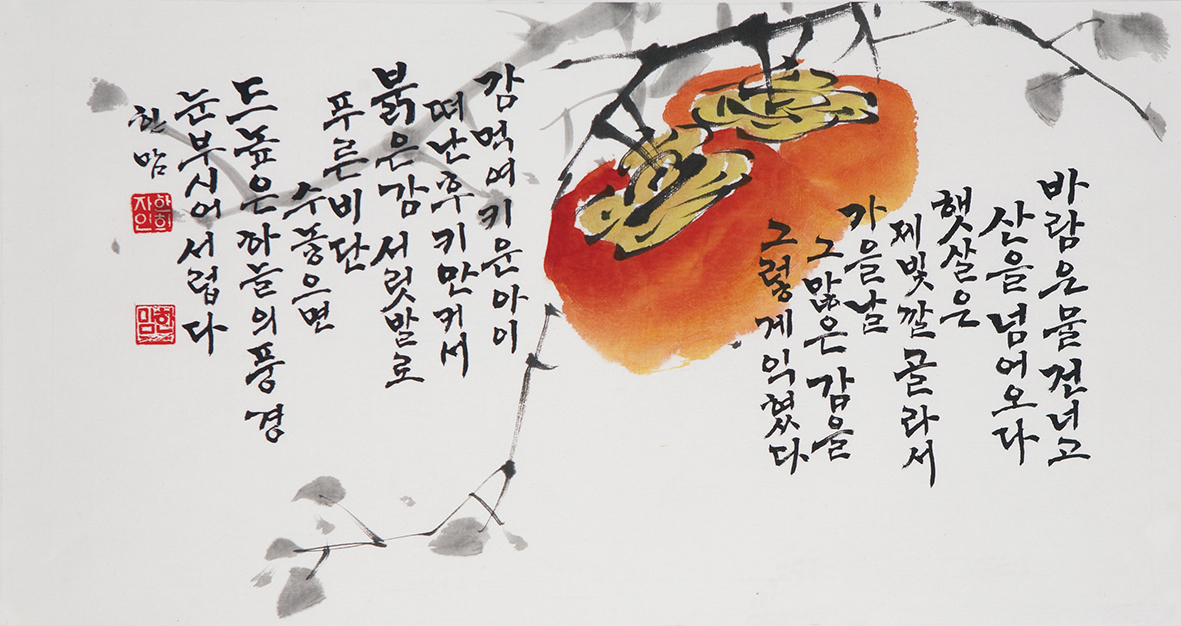 바람은 물 건너고
산을 넘어오다
햇살은
제빛깔 골라서
가을날
그 많은 감을
그렇게 익혔다
감 먹여 키운 아이
떠난 후 키만 커서
붉은 감 서릿발로
푸른 비단
수놓으면
드높은 하늘의 풍경
눈부시어 서럽다
한맘
한맘